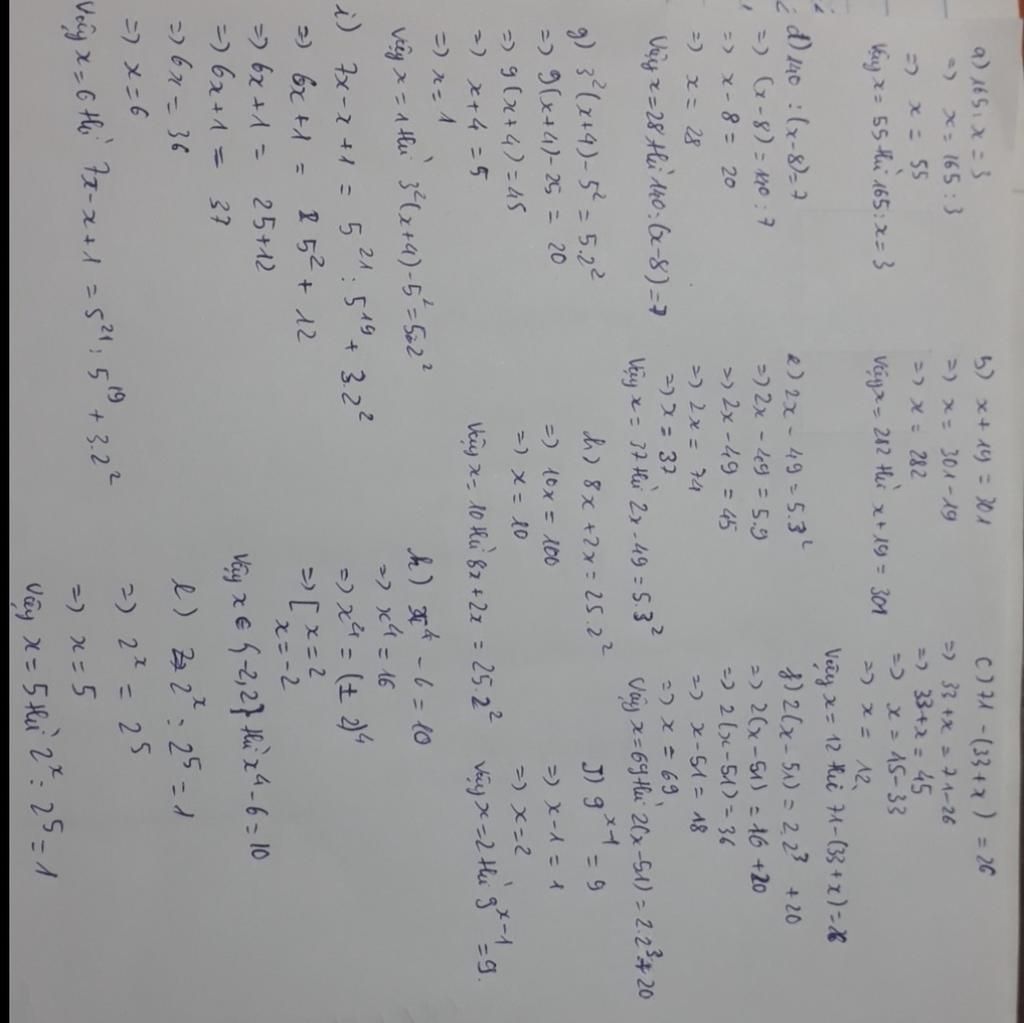 a) 165 : x = 3
=> x = 165 : 3
=> x = 55
Vậy x = 55 thì 165 : x = 3
b) x + 19 = 301
=> x = 301 - 19
=> x = 282
Vậy x = 282 thì x + 19 = 301
c) 71 - (33 + x) = 26
=> 33 + x = 71 - 26
=> 33 + x = 45
=> x = 15 - 33
=> x = 12
Vậy x = 12 thì 71 - (33 + x) = 26
d) 140 : (x - 8) = 7
=> (x - 8) = 140 : 7
=> x - 8 = 20
=> x = 28
Vậy x = 28 thì 140 : (x - 8) = 7
e) 2x - 49 = 5.3²
=> 2x - 49 = 5.9
=> 2x - 49 = 45
=> 2x = 74
=> x = 37
Vậy x = 37 thì 2x - 49 = 5.3²
f) 2(x - 51) = 2.2³ + 20
=> 2(x - 51) = 16 + 20
=> 2(x - 51) = 36
=> x - 51 = 18
=> x = 69
Vậy x = 69 thì 2(x - 51) = 2.2³ + 20
g) 3²(x + 4) - 5² = 5.2²
=> 9(x + 4) - 25 = 20
=> 9(x + 4) = 45
=> x + 4 = 5
=> x = 1
Vậy x = 1 thì 3²(x + 4) - 5² = 5.2²
h) 8x + 2x = 25.2²
=> 10x = 100
=> x = 10
Vậy x = 10 thì 8x + 2x = 25.2²
J) 9ˣ⁻¹ = 9
=> x - 1 = 1
=> x = 2
Vậy x = 2 thì 9ˣ⁻¹ = 9.
i) 7x - x + 1 = 5²¹ : 5¹⁹ + 3.2²
=> 6x + 1 = 5² + 12
=> 6x + 1 = 25 + 12
=> 6x + 1 = 37
=> 6x = 36
=> x = 6
Vậy x = 6 thì 7x - x + 1 = 5²¹ : 5¹⁹ + 3.2²
k) x⁴ - 6 = 10
=> x⁴ = 16
=> x⁴ = (± 2)⁴
=> [ x = 2
x = -2
Vậy x ∈ {-2, 2} thì x⁴ - 6 = 10
l) 2ˣ : 2⁵ = 1
=> 2ˣ = 2⁵
=> x = 5
Vậy x = 5 thì 2ˣ : 2⁵ = 1